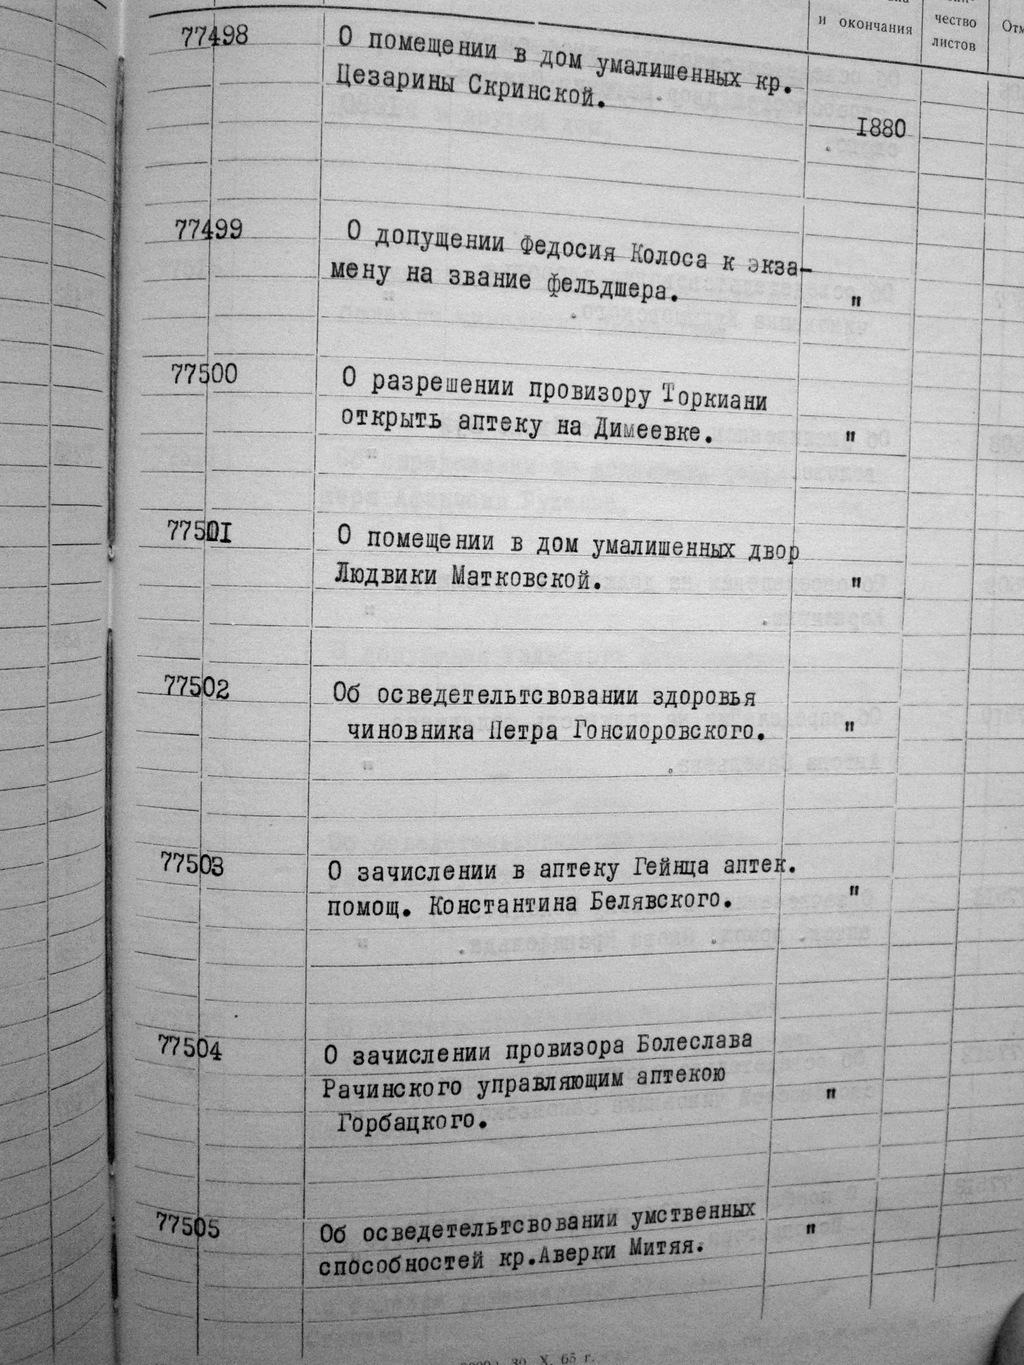 и окончания
чество
листов
77498
О помещении в дом умалишенных кр.
Цезарины Скринской.
I880
77499
О допущении Федосия Колоса к экза-
мену на звание фельдшера.
"
77500
О разрешении провизору Торкиани
открыть аптеку на Димеевке.
"
7750I
О помещении в дом умалишенных двор
Людвики Матковской.
"
77502
Об осведетельтсвовании здоровья
чиновника Петра Гонсиоровского.
"
77503
О зачислении в аптеку Гейнца аптек.
помощ. Константина Белявского.
"
77504
О зачислении провизора Болеслава
Рачинского управляющим аптекою
Горбацкого.
"
77505
Об осведетельтсвовании умственных
способностей кр.Аверки Митяя.
"
30. X. 65 г.